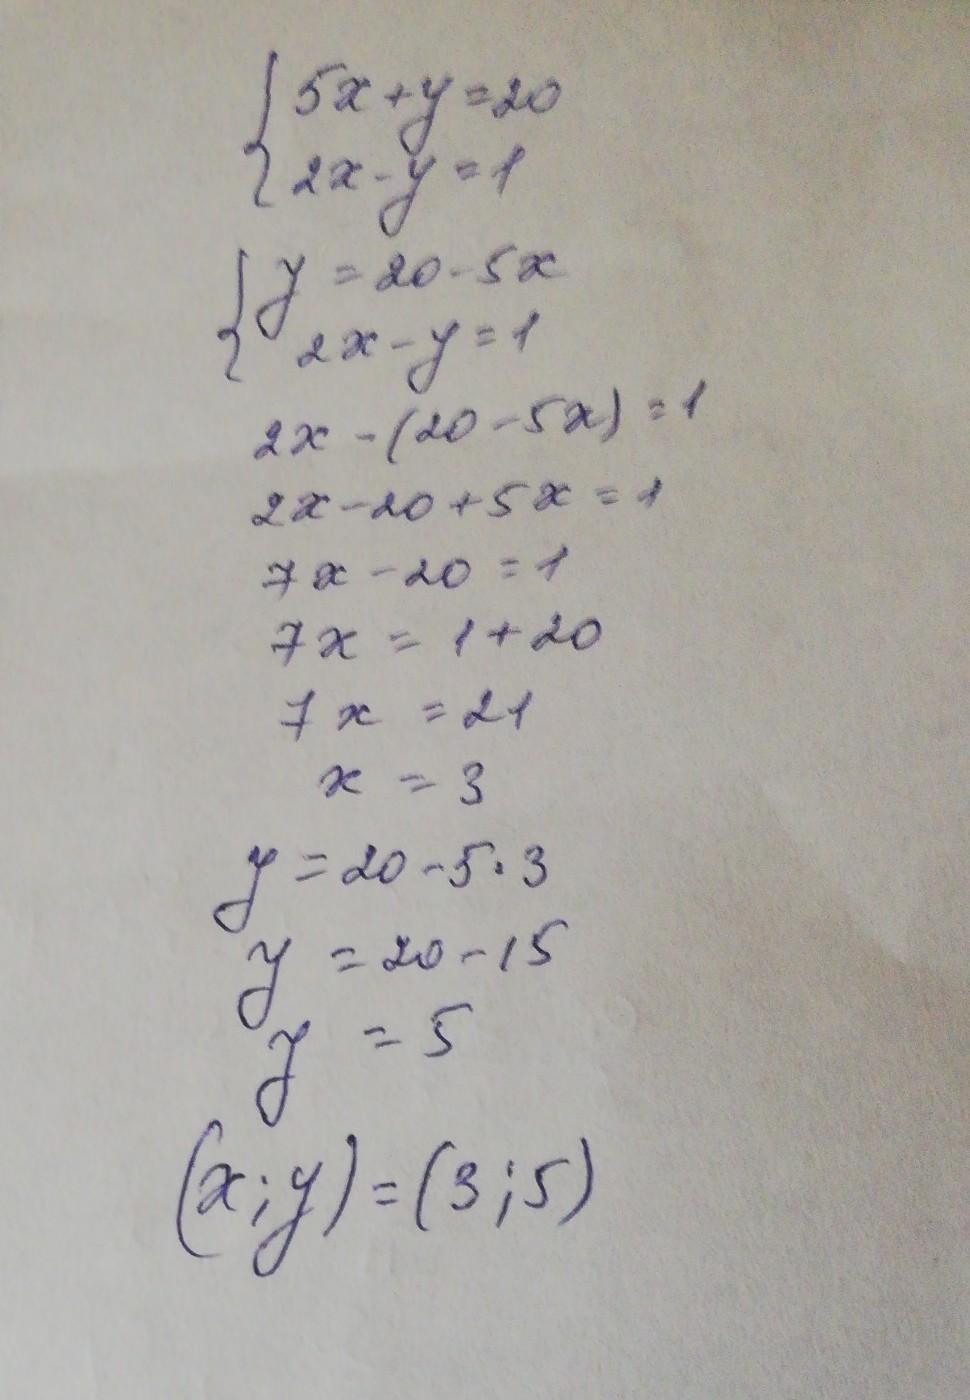 { 5x+y=20
2x-y=1
{ y=20-5x
2x-y=1
2x-(20-5x)=1
2x-20+5x=1
7x-20=1
7x=1+20
7x=21
x=3
y=20-5·3
y=20-15
y=5
(x;y)=(3;5)